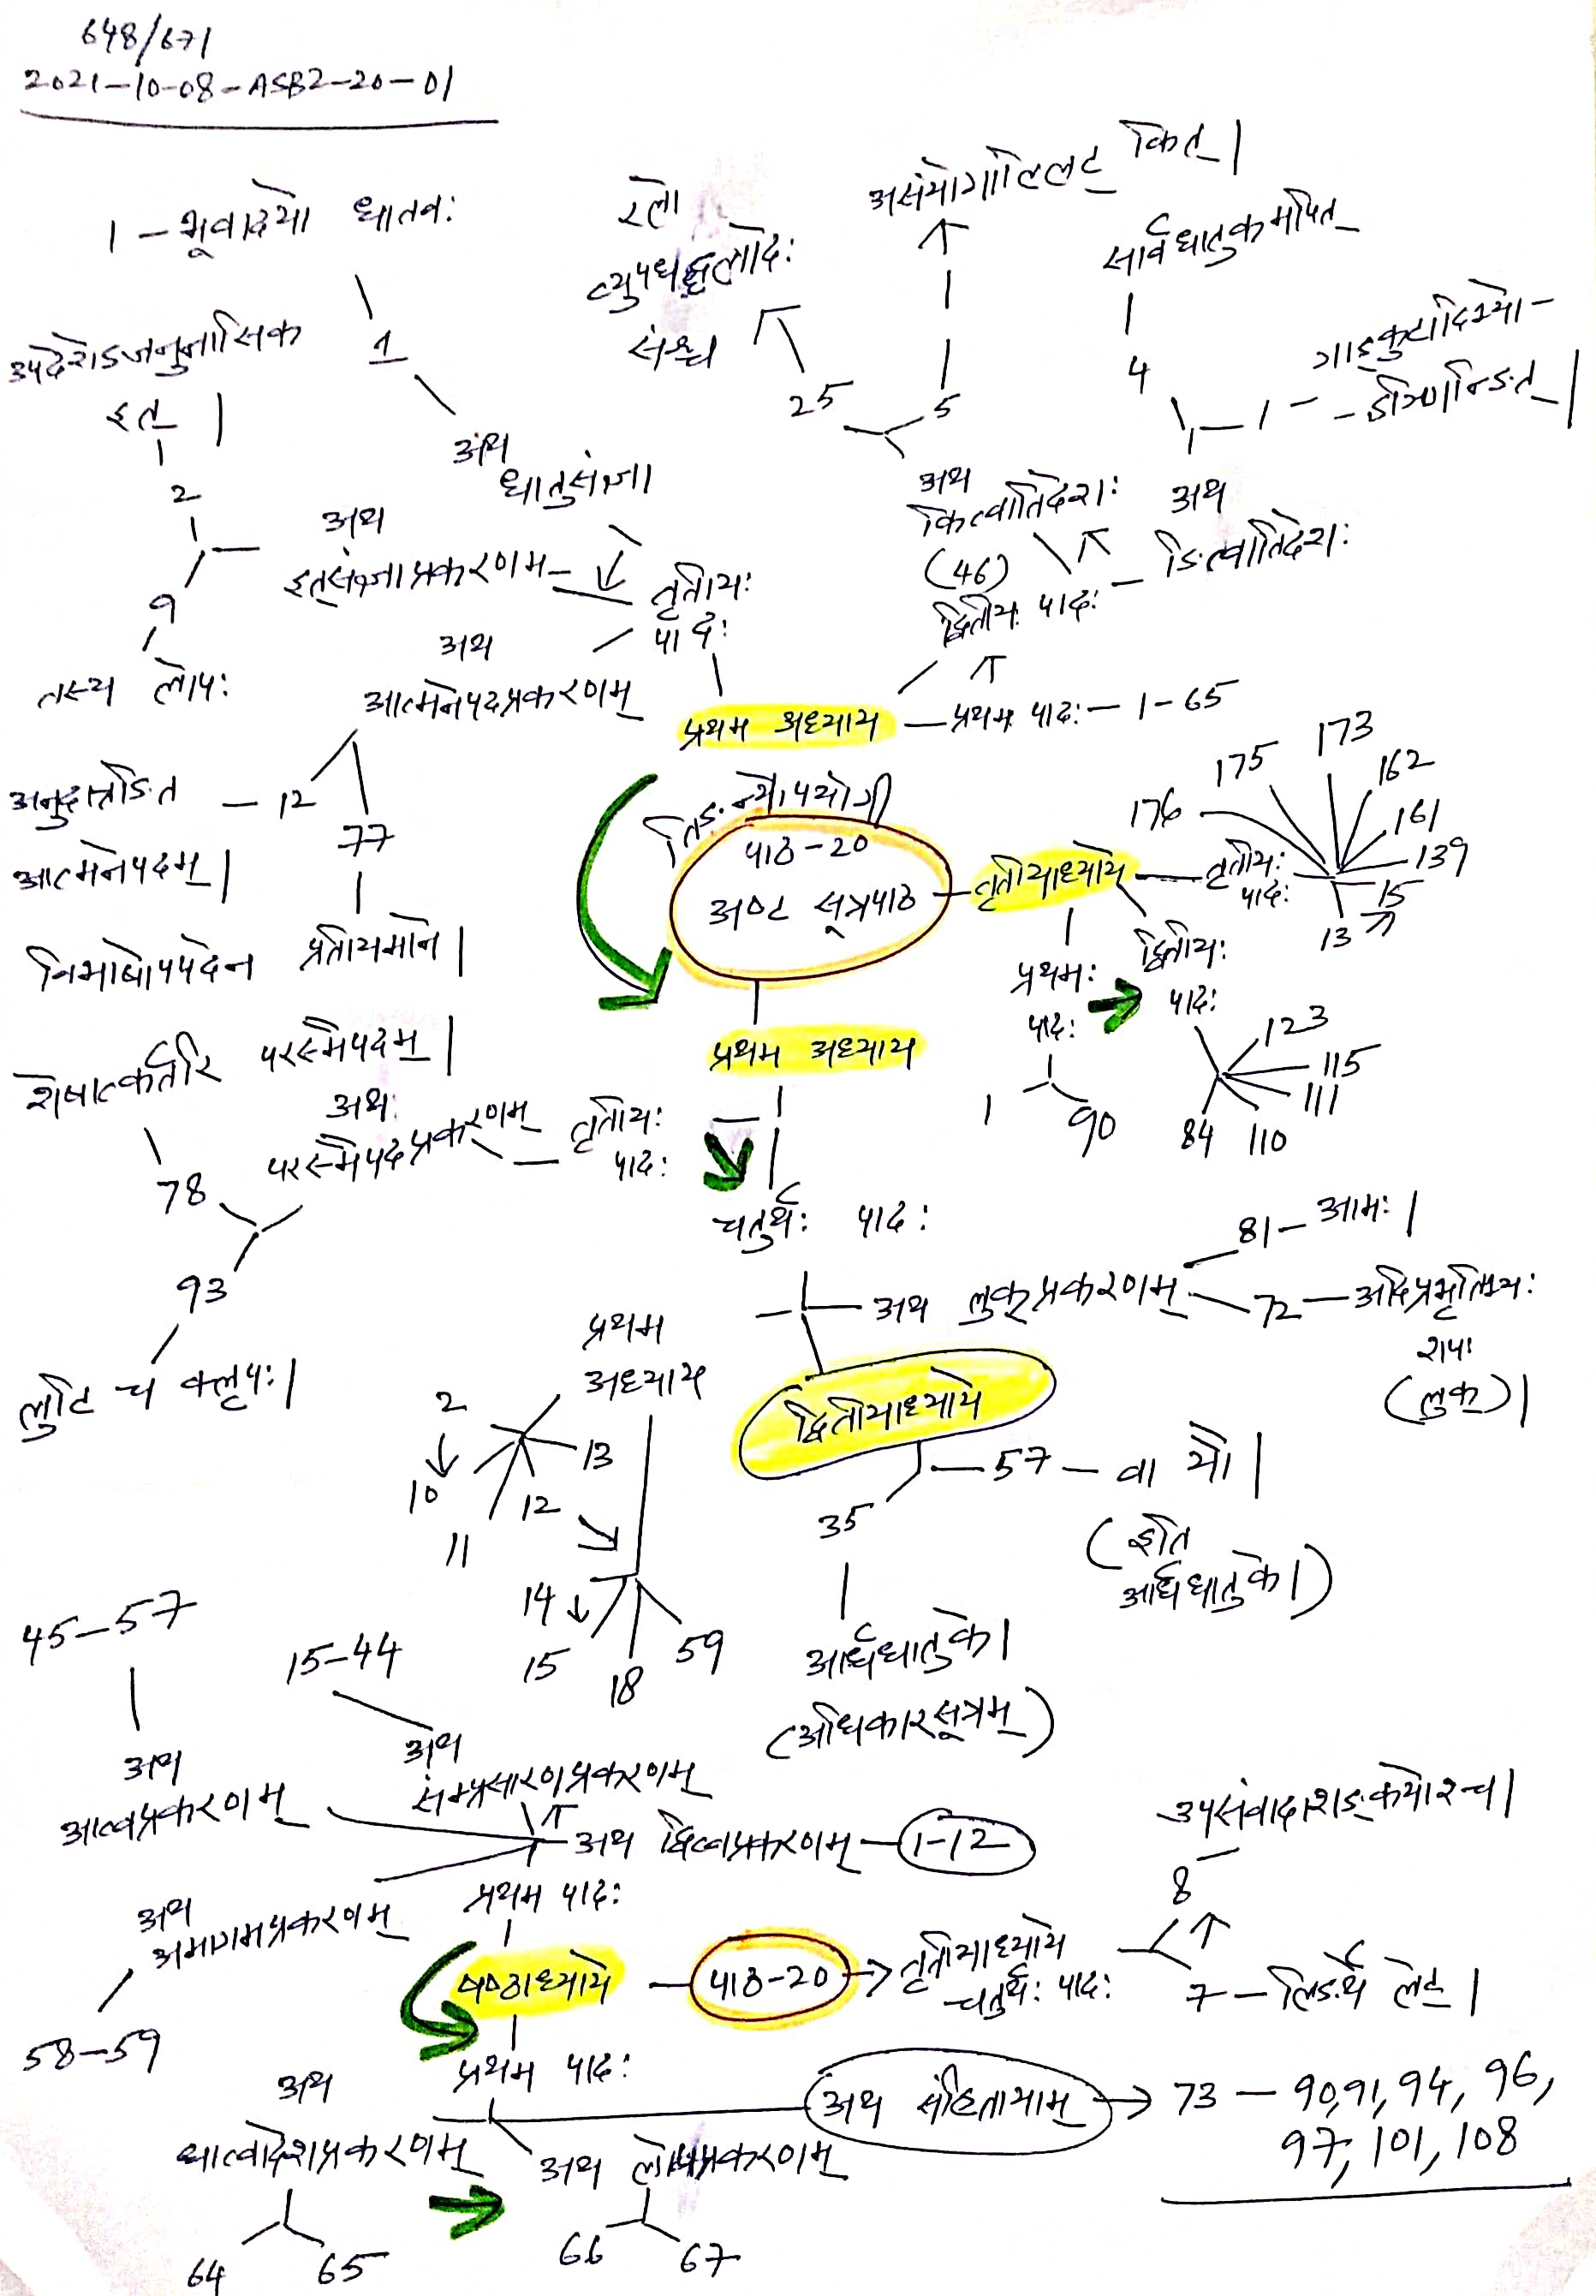 648/671
2021-10-08-ASB2-20-01
1 - भूवादयो धातवः
1
अथ
धातुसंज्ञा
उपदेशेऽजनुनासिक
इत् |
2
9
तस्य लोपः
अथ
इत्संज्ञाप्रकरणम्
तृतीयः
पादः
रलो
व्युपधाद्धलादेः
संश्च
25
5
असंयोगाल्लिट् कित् |
सार्वधातुकमपित्
4
1 - गाङ्कुटादिभ्यो-
-ञ्णिन्ङित् |
अथ
कित्वातिदेशः
(46)
अथ
ङित्वातिदेशः
द्वितीय पादः
अथ
आत्मनेपदप्रकरणम्
अनुदात्तङित - 12
आत्मनेपदम् |
77
विभाषोपपदेन प्रतीयमाने |
प्रथम अध्याय - प्रथम पादः - 1-65
तिङन्तोपयोगी
पाठ-20
अष्ट सूत्रपाठ
तृतीयाध्याये
तृतीयः
पादः
176
175
173
162
161
139
15
13
द्वितीयः
पादः
123
115
111
110
84
प्रथमः
पादः
1
90
प्रथम अध्याय
शेषात्कर्तरि परस्मैपदम् |
अथ
परस्मैपदप्रकरणम्
तृतीयः
पादः
78
93
लुटि च क्लृपः |
चतुर्थः पादः
अथ लुक्प्रकरणम्
81 - आमः |
72 - अदिप्रभृतिभ्यः
शपः
(लुक्) |
द्वितीयाध्याये
57 - वा यौ |
(इति
आर्धधातुके |)
35
आर्धधातुके |
(अधिकारसूत्रम्)
प्रथम
अध्याय
2
10
11
12
13
14
15
18
59
45-57
अथ
आत्वप्रकरणम्
15-44
अथ
संम्प्रसारणप्रकरणम्
अथ द्वित्वप्रकरणम् - 1-12
प्रथम पादः
अथ
अमागमप्रकरणम्
58-59
षष्ठाध्याये
पाठ-20
तृतीयाध्याये
चतुर्थः पादः
उपसंवादाशङ्कयोश्च |
8
7 - लिङर्थे लेट् |
प्रथम पादः
अथ संहितायाम्
73 - 90, 91, 94, 96,
97, 101, 108
अथ
धात्वादेशप्रकरणम्
64
65
अथ लोपप्रकरणम्
66
67